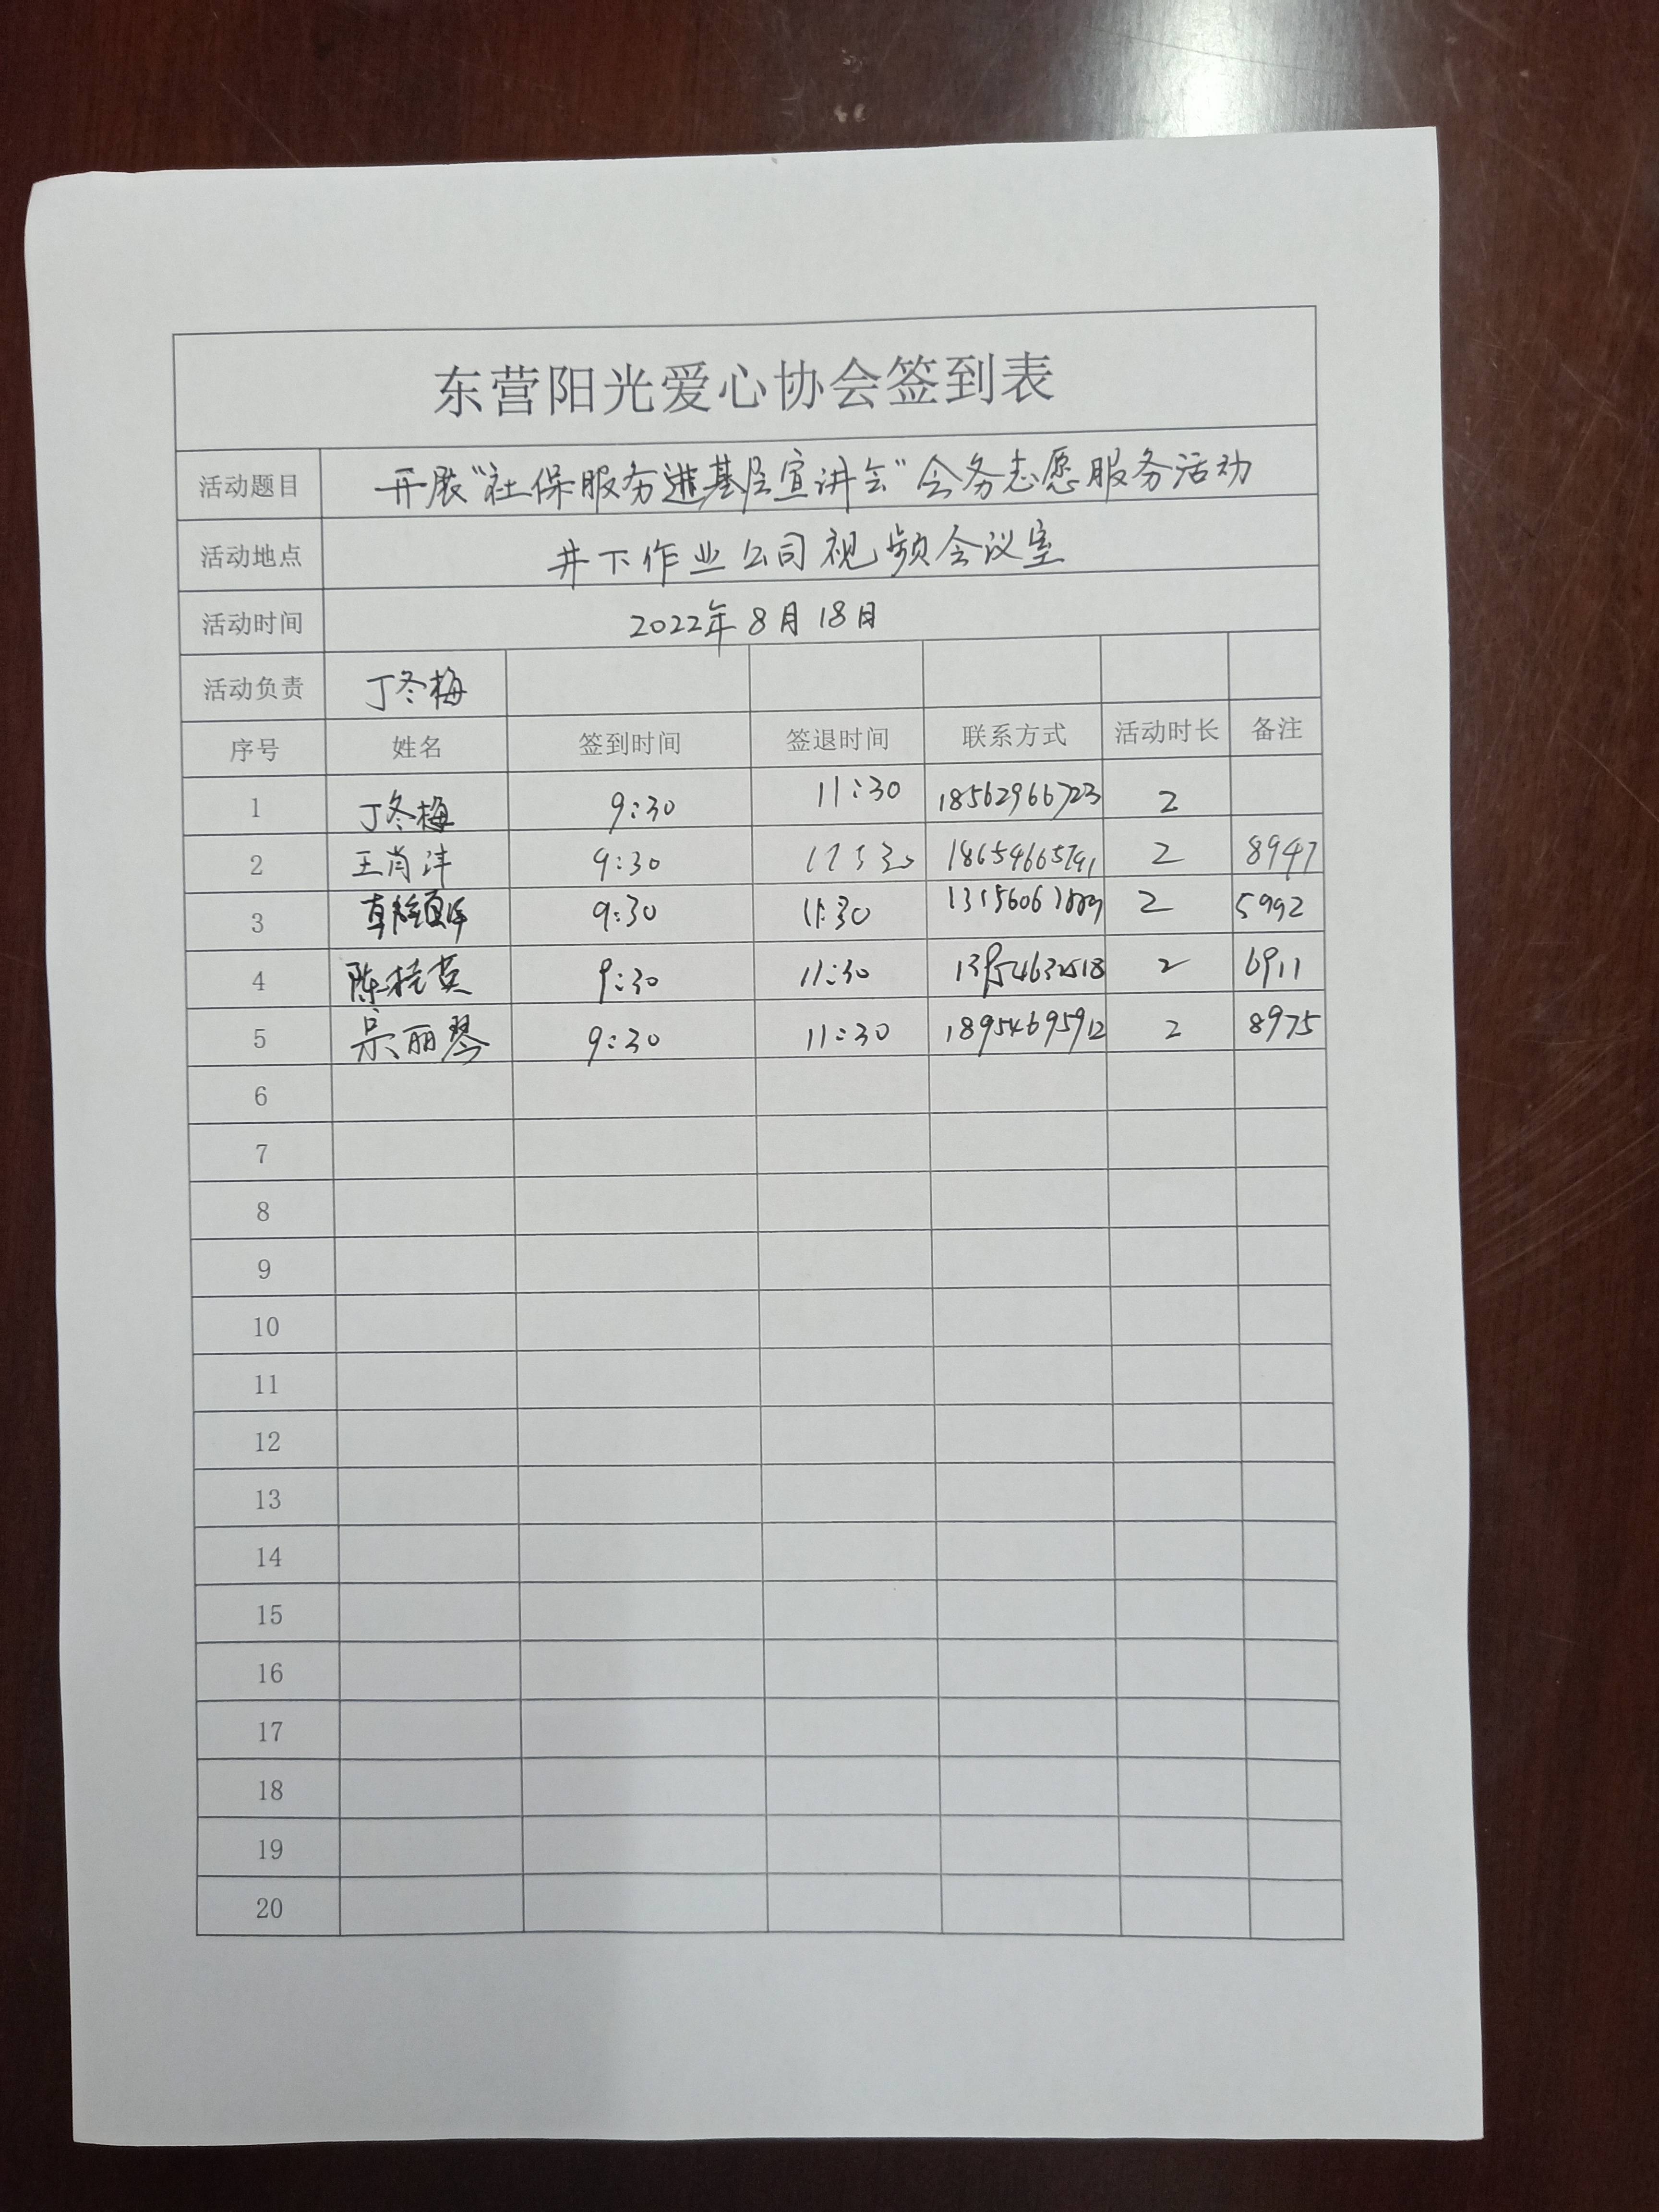 东营阳光爱心协会签到表
活动题目 开展"社保服务进基层宣讲会"会务志愿服务活动
活动地点 井下作业公司视频会议室
活动时间 2022年8月18日
活动负责 丁冬梅
序号 姓名 签到时间 签退时间 联系方式 活动时长 备注
1 丁冬梅 9:30 11:30 18562966723 2
2 王肖沣 9:30 2 8947
3 9:30 11:30 2 5992
4 陈桂英 9:30 11:30 2 6911
5 吴丽琴 9:30 11:30 18954695912 2 8975
6
7
8
9
10
11
12
13
14
15
16
17
18
19
20